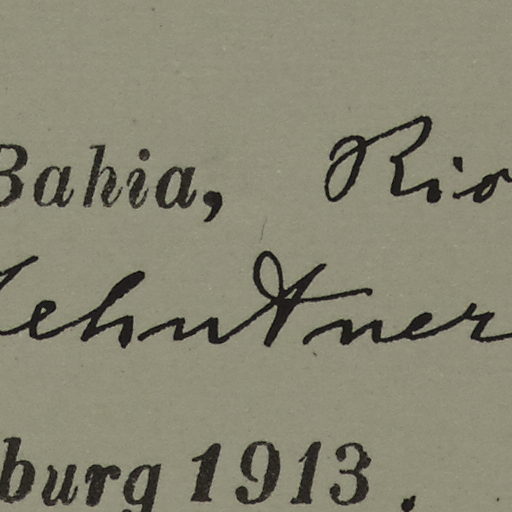 Bahia, Rio
Zehntner
burg 1913.